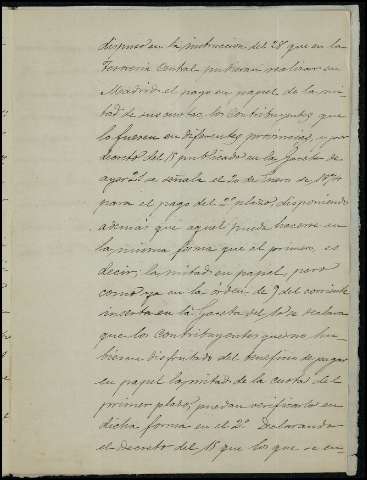 dispuso en la instruccion del 28 que en la
Tesoreria Central pudieran realizar en
Madrid el pago en papel de la mi-
tad de sus cuotas los contribuyentes que
lo fuesen en diferentes provincias, y por
decreto del 15 publicado en la Gaceta de
ayer se señala el 20 de Enero de 1874
para el pago del 2º plazo, disponiendo
además que aquel pueda hacerse en
la misma forma que el primero, es
decir, la mitad en papel, pero
como ya en la orden de 9 del corriente
inserta en la Gaceta del 10 se declara
que los contribuyentes que no hu-
biesen disfrutado del beneficio de pagar
en papel la mitad de la cuota del
primer plazo, puedan verificarlo en
dicha forma en el 2º Declarando
el decreto del 15 que los que se en-